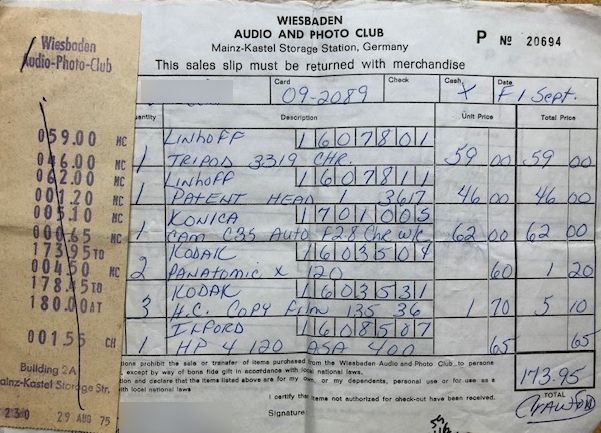 Wiesbaden
Audio-Photo-Club
059.00 MC
046.00 MC
062.00 MC
001.20 MC
005.10 MC
000.65 MC
173.95 TO
004.50 MC
178.45 TO
180.00 AT
001.55 CH
Building 2A
Mainz-Kastel Storage Str.
230 29 AUG 75
WIESBADEN
AUDIO AND PHOTO CLUB
Mainz-Kastel Storage Station, Germany
P No 20694
This sales slip must be returned with merchandise
Card Check Cash Date
09-2089 X F1 Sept.
Quantity Description Unit Price Total Price
LINHOFF 1607801
1 TRIPOD 3319 CHR. 59 00 59 00
LINHOFF 1607811
1 PATENT HEAD 1 3617 46 00 46 00
KONICA 1701005
1 CAM C35 AUTO F28 CHR W/C 62 00 62 00
KODAK 1603504
2 PANATOMIC X 120 60 1 20
KODAK 1603531
3 H.C. COPY FILM 135 36 1 70 5 10
ILFORD 1608507
1 HP 4 120 ASA 400 65 65
prohibit the sale or transfer of items purchased from the Wiesbaden Audio and Photo Club to persons
except by way of bona fide gift in accordance with local national laws.
and declare that the items listed above are for my own, or my dependents, personal use or for use as a
with local national laws
I certify that items not authorized for check-out have been received.
Signature
173.95
TOTAL